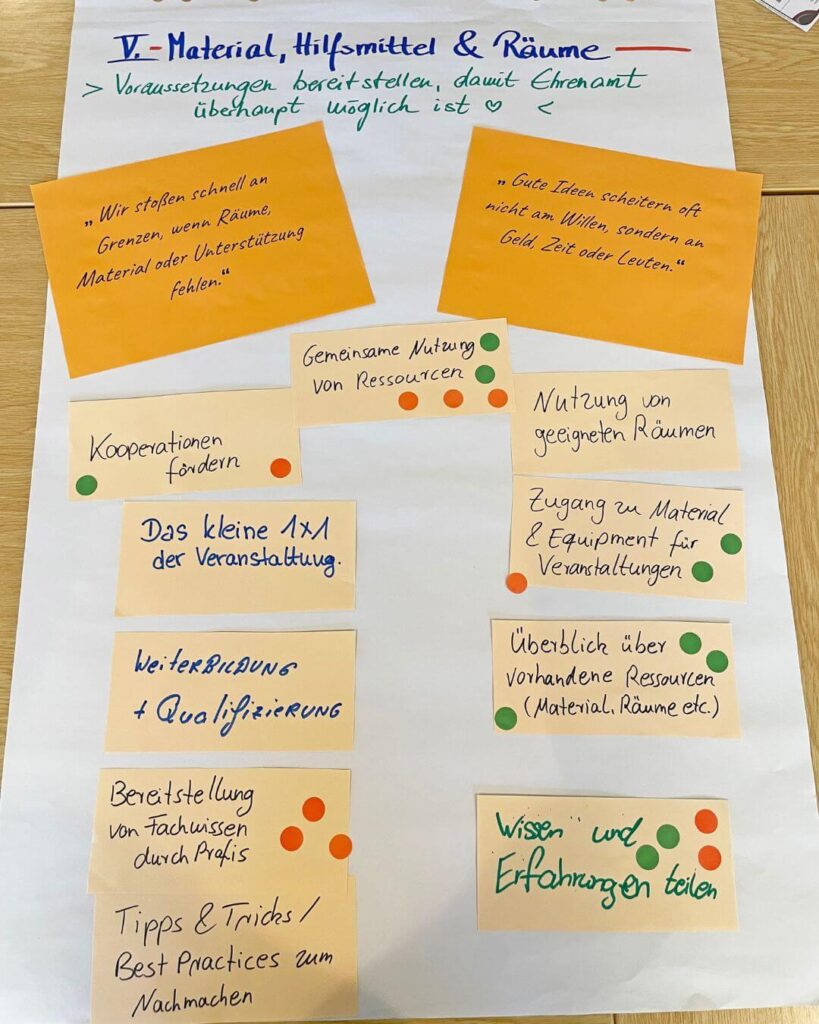 V. - Material, Hilfsmittel & Räume
> Voraussetzungen bereitstellen, damit Ehrenamt
überhaupt möglich ist ♡ <
„Wir stoßen schnell an
Grenzen, wenn Räume,
Material oder Unterstützung
fehlen.“
„Gute Ideen scheitern oft
nicht am Willen, sondern an
Geld, Zeit oder Leuten.“
Gemeinsame Nutzung
von Ressourcen
Kooperationen
fördern
Nutzung von
geeigneten Räumen
Das kleine 1x1
der Veranstaltung.
Zugang zu Material
& Equipment für
Veranstaltungen
WeiterBILDUNG
+ QualifiziERUNG
Überblick über
vorhandene Ressourcen
(Material, Räume etc.)
Bereitstellung
von Fachwissen
durch Profis
Wissen und
Erfahrungen teilen
Tipps & Tricks /
Best Practices zum
Nachmachen